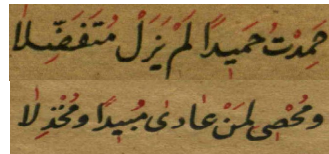 حَمِدْتُ حَمِيدًا لَمْ يَزَلْ مُتَفَضِّلًا
وَمُحْصِى لِمَنْ عَادٰى مُبِيدًا وَمُخْذِلًا